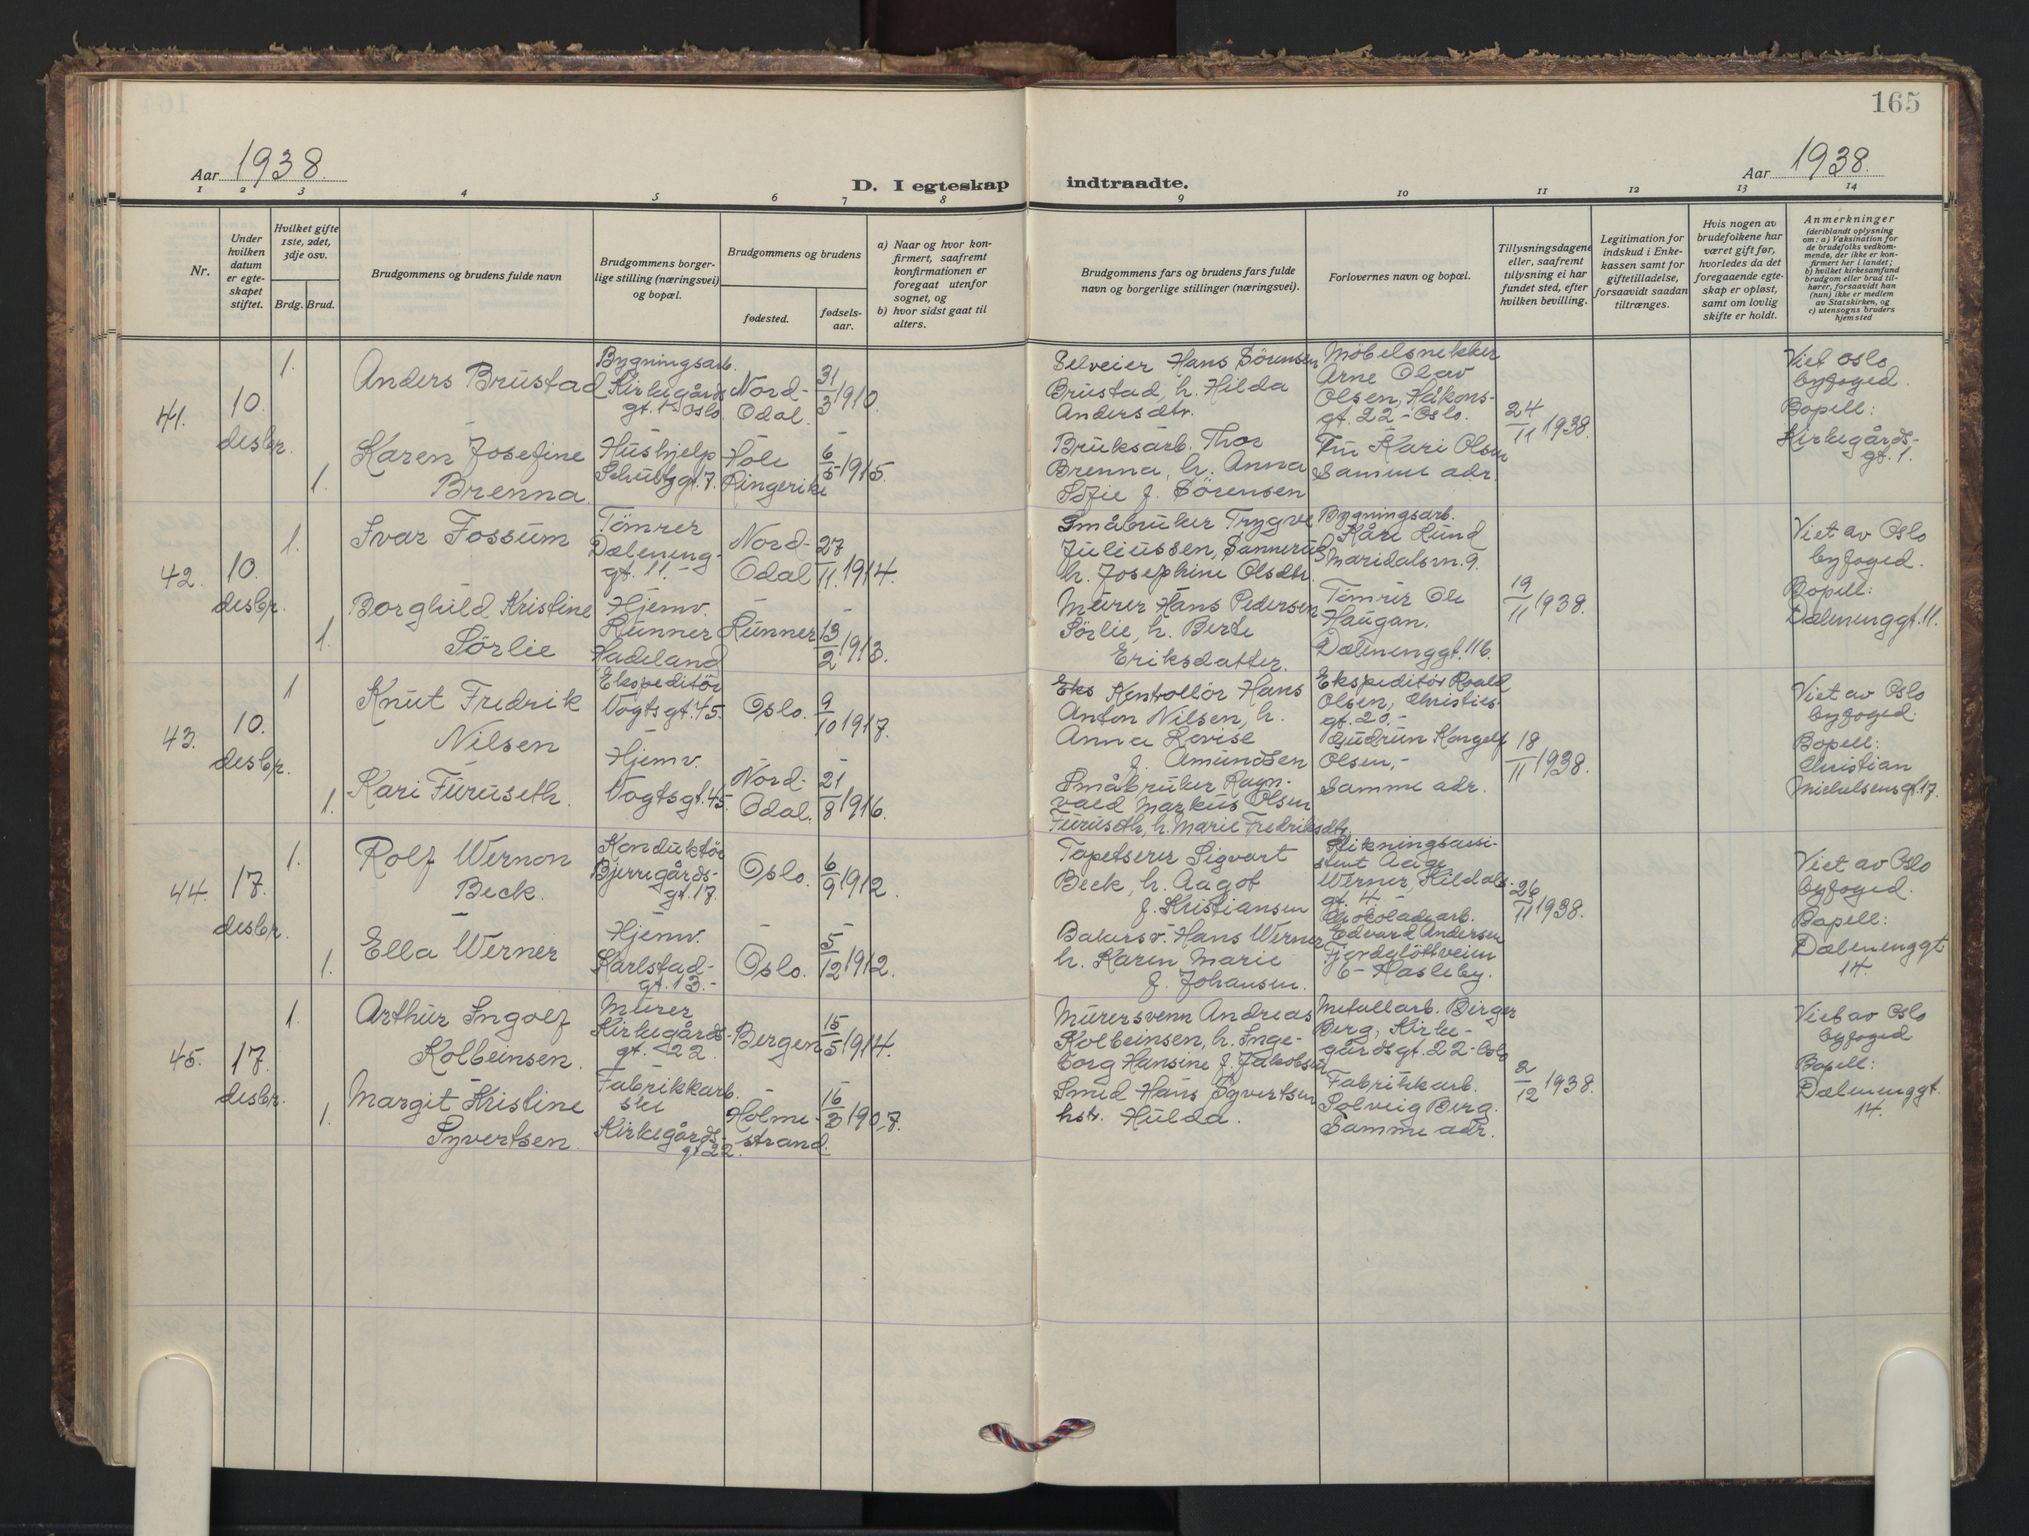 165
Aar 1938.
D. I egteskap indtraadte.
Aar 1938.
1 2 3 4 5 6 7 8 9 10 11 12 13 14
Nr.
Under
hvilken
datum
er egte-
skapet
stiftet.
Hvilket gifte
1ste, 2det,
3dje osv.
Brdg. Brud.
Brudgommens og brudens fulde navn
Brudgommens borger-
lige stilling (næringsvei)
og bopæl.
Brudgommens og brudens
fødested.
fødsels-
aar.
a) Naar og hvor kon-
firmert, saafremt
konfirmationen er
foregaat utenfor
sognet, og
b) hvor sidst gaat til
alters.
Brudgommens fars og brudens fars fulde
navn og borgerlige stillinger (næringsvei).
Forlovernes navn og bopæl.
Tillysningsdagene
eller, saafremt
tillysning ei har
fundet sted, efter
hvilken bevilling.
Legitimation for
indskud i Enke-
kassen samt for
giftetilladelse,
forsaavidt saadan
tiltrænges.
Hvis nogen av
brudefolkene har
været gift før,
hvorledes da det
foregaaende egte-
skap er opløst,
samt om lovlig
skifte er holdt.
Anmerkninger
(deriblandt oplysning
om: a) Vaksination for
de brudefolks vedkom-
mende, der ikke er kon-
firmert her i landet;
b) hvilket kirkesamfund
brudgom eller brud til-
hører, forsaavidt han
(hun) ikke er medlem
av Statskirken, og
c) utensogns bruders
hjemsted
41.
10.
desbr.
1.
Anders Brustad
Bygningsarb.
Kirkegårds
gt. 1 - Oslo.
Nord-
Odal.
31/3 1910.
Selveier Hans Sörensen
Brustad, h. Hilda
Andersdtr.
Möbelsnekker
Arne Olav
Olsen, Håkons-
gt. 22 - Oslo.
24/11 1938.
Viet Oslo
byfoged.
Bopell:
Kirkegårds-
gt. 1.
1.
Karen Josefine
Brenna.
Hushjelp
Schultzgt. 7.
Hole
Ringerike
6/5 1915.
Bruksarb. Thor
Brenna, h. Anna
Sofie f. Sörensen
Fru Kari Olsen
Samme adr.
42.
10.
desbr.
1.
Ivar Fossum
Tömrer
Dæleneng-
gt. 11. -
Nord-
Odal
27/11 1914.
Småbruker Trygve
Juliussen, Sannerud
h. Josephine Olsdtr.
Bygningsarb.
Kåre Lund
Maridalsvn. 9.
19/11 1938.
Viet av Oslo
byfoged.
Bopell:
Dælenenggt. 11.
1.
Borghild Kristine
Sörlie
Hjemv.
Lunner
Hadeland
Lunner
13/2 1913.
Murer Hans Pedersen
Sörlie, h. Berte
Eriksdatter.
Tömrer Ole
Haugan.
Dælenenggt. 11b.
43.
10.
desbr.
1
Knut Fredrik
Nilsen
Ekspeditör
Vogtsgt. 45.
Oslo.
9/10 1917.
Eks Kontrollör Hans
Anton Nilsen, h.
Anna Lovise
f. Amundsen
Ekspeditör Roald
Olsen, Christies-
gt. 20. -
18/11 1938.
Viet av Oslo
byfoged.
Bopell:
Christian
Michelsensgt. 17.
1.
Kari Furuseth.
Hjemv.
Vogtsgt. 45.
Nord-
Odal.
21/8 1916.
Småbruker Ragn-
vald Markus Olsen
Furuseth, h. Marie Fredriksdtr.
Gudrun
Olsen, -
Samme adr.
44.
17.
desbr.
1.
Rolf Wernon
Beck.
Konduktör
Bjerregårds-
gt. 17.
Oslo.
6/9 1912.
Tapetserer Sigvart
Beck, h. Aagot
f. Kristiansen
stent Aage
Werner, Kildals-
gt. 4. -
26/11 1938.
Viet av Oslo
byfoged.
Bopell:
Dælenenggt
14.
1.
Ella Werner
Hjemv.
Karlstad-
gt. 13. -
Oslo.
5/12 1912.
Bakersv. Hans Werner
h. Karen Marie
f. Johansen.
Chokoladearb.
Edvard Andersen
Fjordglöttveien
6 - Hasleby.
45.
17.
desbr.
1.
Arthur Ingolf
Kolbeinsen.
Murer
Kirkegårds-
gt. 22.
Bergen
15/5 1914.
Murersvenn Andreas
Kolbeinsen, h. Inge-
borg Hansine f. Jakobsen
Metallarb. Birger
Berg, Kirke-
gårdsgt. 22 - Oslo
2/12 1938.
Viet av Oslo
byfoged
Bopell:
Dælenenggt.
14.
1.
Margit Kristine
Syvertsen.
Fabrikkarb.
ske
Kirkegårds-
gt 22.
Holme-
strand.
16/3 1907.
Smed Hans Syvertsen
hstr. Hulda.
Fabrikkarb.
Solveig Berg.
Samme adr.